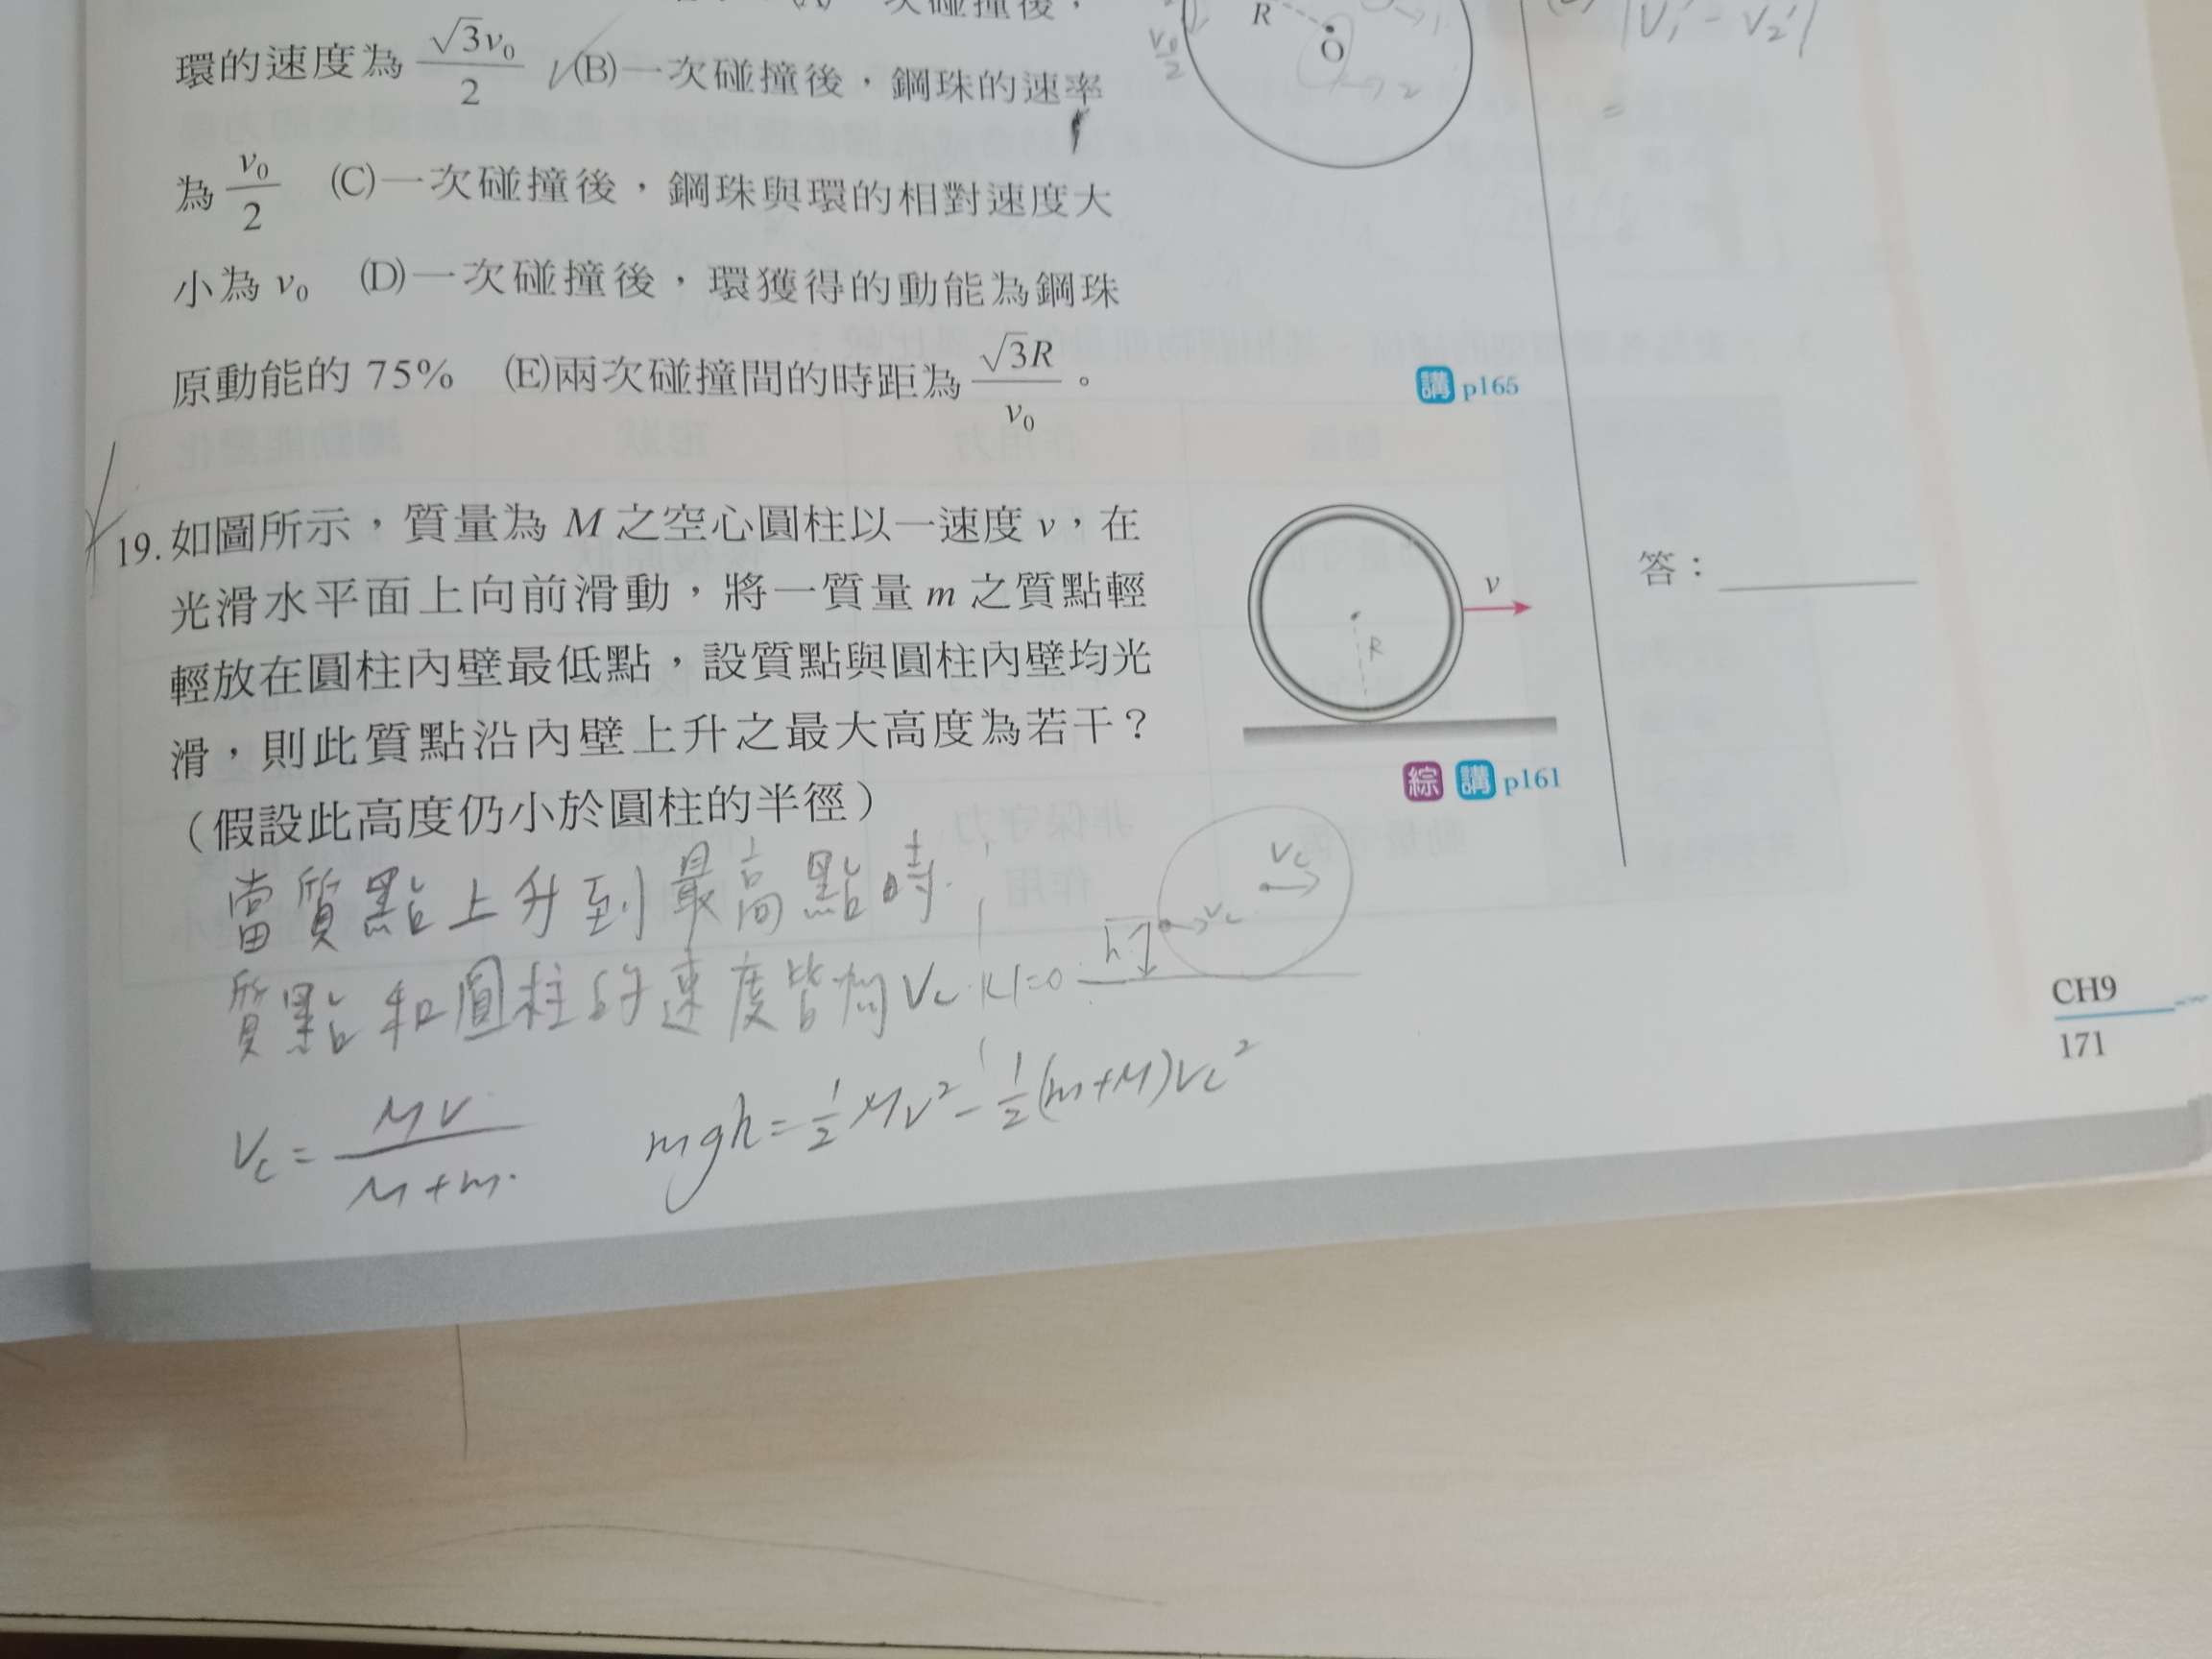 次碰撞後，
環的速度為 √3v₀/2 (B)一次碰撞後，鋼珠的速率
為 v₀/2 (C)一次碰撞後，鋼珠與環的相對速度大
小為 v₀ (D)一次碰撞後，環獲得的動能為鋼珠
原動能的 75% (E)兩次碰撞間的時距為 √3R/v₀。
R
O
v₀/2
1
2
|V₁' - V₂'|
=
講 p165
19. 如圖所示，質量為 M 之空心圓柱以一速度 v，在
光滑水平面上向前滑動，將一質量 m 之質點輕
輕放在圓柱內壁最低點，設質點與圓柱內壁均光
滑，則此質點沿內壁上升之最大高度為若干？
（假設此高度仍小於圓柱的半徑）
v
R
綜 講 p161
答：
當質點上升到最高點時
質點和圓柱的速度皆為 Vc
Vc
Vc
h
Vc = MV/(M+m)
mgh = ½Mv² - ½(m+M)Vc²
CH9
171